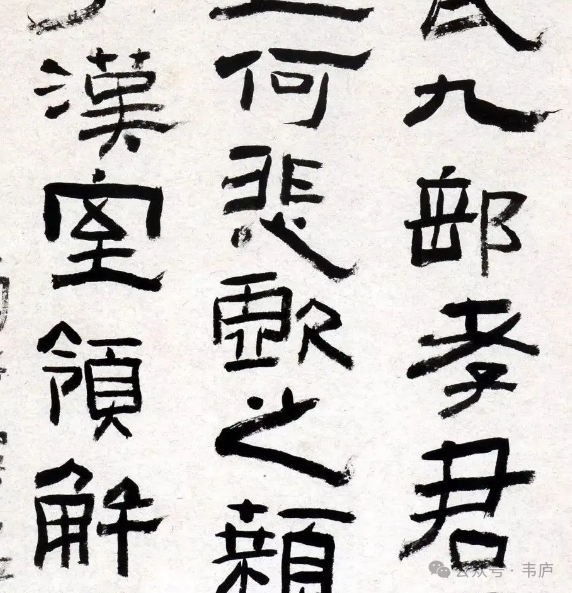 九部孝君
何悲歔之
漢室領解
公众号·韦庐